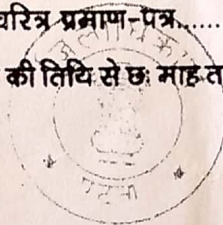 चरित्र प्रमाण-पत्र.......
की तिथि से छः माह त
पटना